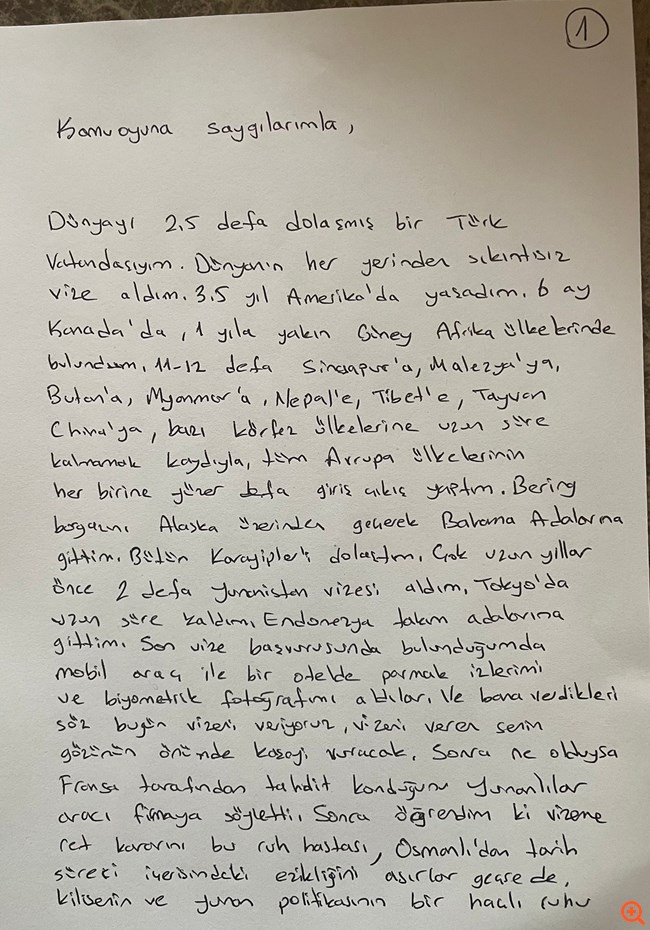 1
Kamuoyuna saygılarımla,
Dünyayı 2,5 defa dolaşmış bir Türk
Vatandaşıyım. Dünyanın her yerinden sıkıntısız
vize aldım. 3.5 yıl Amerika'da yaşadım. 6 ay
Kanada'da, 1 yıla yakın Güney Afrika ülkelerinde
bulundum. 11-12 defa Singapur'a, Malezya'ya,
Butan'a, Myanmar'a, Nepal'e, Tibet'e, Tayvan
China'ya, bazı körfez ülkelerine uzun süre
kalmamak kaydıyla, tüm Avrupa ülkelerinin
her birine yüzer defa giriş çıkış yaptım. Bering
boğazını Alaska üzerinden geçerek Bahama Adalarına
gittim. Bütün Karayipler'i dolaştım. Çok uzun yıllar
önce 2 defa Yunanistan vizesi aldım, Tokyo'da
uzun süre kaldım, Endonezya takım adalarına
gittim. Son vize başvurusunda bulunduğumda
mobil araç ile bir otelde parmak izlerimi
ve biyometrik fotoğrafımı aldılar. Ve bana verdikleri
söz bugün vizeni veriyoruz, vizeni veren senin
gözünün önünde kaşeyi vuracak. Sonra ne olduysa
Fransa tarafından tahdit konduğunu Yunanlılar
aracı firmaya söyletti. Sonra öğrendim ki vizeme
ret kararını bu ruh hastası, Osmanlı'dan tarih
süreci içerisindeki ezikliğini asırlar geçse de,
kilisenin ve yunan politikasının bir haçlı ruhu